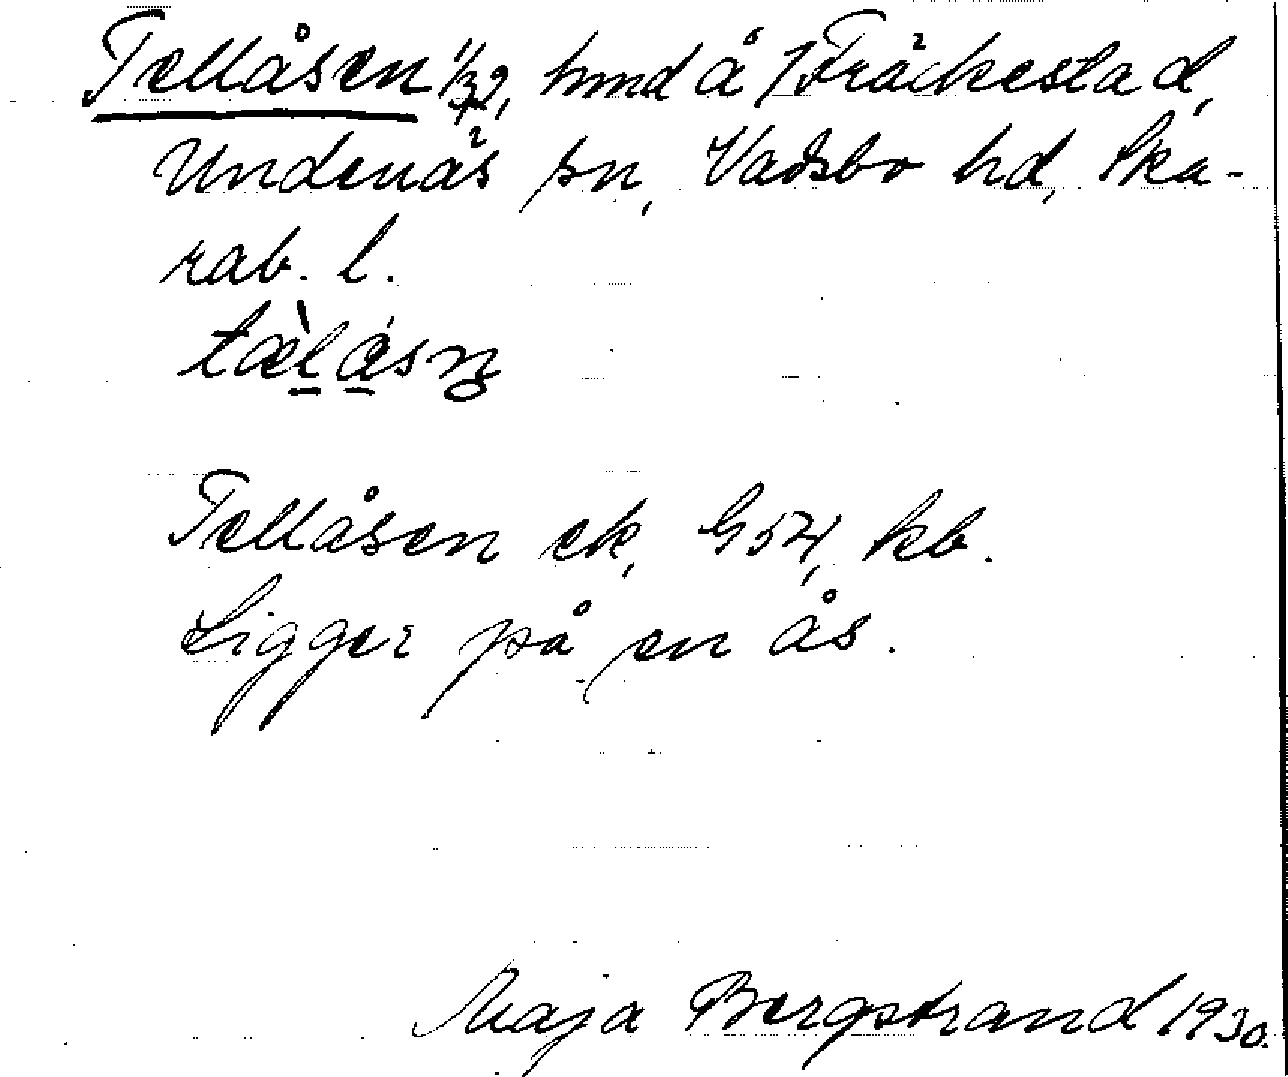 Tellåsen 1/32, hmd å 1 Fräckestad,
Undenäs sn, Vadsbo hd, Ska-
rab. l.
tæ̀låsn̥
Tellåsen ek, G54, kb.
Ligger på en ås.
Maja Bergstrand 1930.